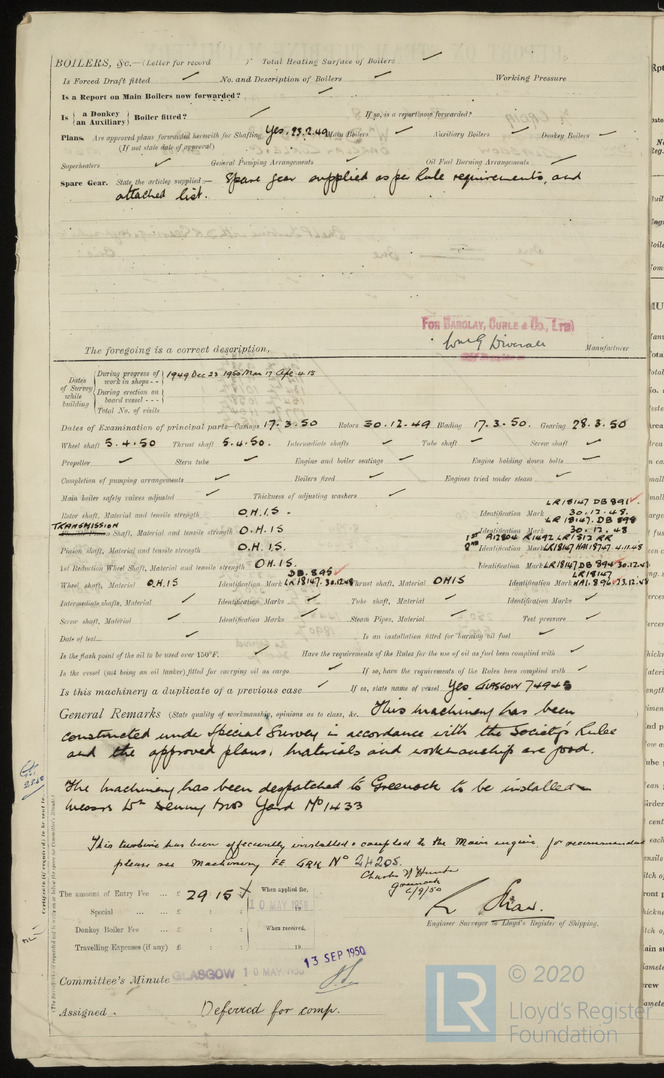 BOILERS, &c.—(Letter for record ) Total Heating Surface of Boilers ✓
Is Forced Draft fitted ✓ No. and Description of Boilers ✓ Working Pressure
Is a Report on Main Boilers now forwarded? ✓
Is {a Donkey / an Auxiliary} Boiler fitted? ✓ If so, is a report now forwarded?
Plans. Are approved plans forwarded herewith for Shafting Yes, 23.2.49 Main Boilers ✓ Auxiliary Boilers ✓ Donkey Boilers ✓
(If not state date of approval)
Superheaters ✓ General Pumping Arrangements ✓ Oil Fuel Burning Arrangements ✓
Spare Gear. State the articles supplied:— Spare gear supplied as per Rule requirements, and
attached list.
FOR BARCLAY, CURLE & CO., LTD
The foregoing is a correct description, Manufacturer
Dates of Survey while building
During progress of work in shops - - 1949 Dec 23 1950 Mar 17 Apr 4.13
During erection on board vessel - - -
Total No. of visits
Dates of Examination of principal parts—Casings 17.3.50 Rotors 30.12.49 Blading 17.3.50. Gearing 28.3.50
Wheel shaft 5.4.50 Thrust shaft 5.4.50. Intermediate shafts ✓ Tube shaft ✓ Screw shaft ✓
Propeller ✓ Stern tube ✓ Engine and boiler seatings ✓ Engine holding down bolts ✓
Completion of pumping arrangements ✓ Boilers fixed ✓ Engines tried under steam ✓
Main boiler safety valves adjusted ✓ Thickness of adjusting washers ✓
LR 18147 DB 891 ✓
Rotor shaft, Material and tensile strength O.H.I.S. Identification Mark 30.12.48.
TRANSMISSION LR 18147. DB 898
Shaft, Material and tensile strength O.H.I.S Identification Mark 30.12.48
1st A12804 R1492 LR 1812 RR
Pinion shaft, Material and tensile strength O.H.I.S. 2nd Identification Mark LR18147 HAI 18747 4.11.48
1st Reduction Wheel Shaft, Material and tensile strength O.H.I.S Identification Mark LR18147 DB 894 30.12.48
DB.895 ✓ LR 18147
Wheel shaft, Material O.H.I.S Identification Mark LR 18147. 30.12.48 Thrust shaft, Material OHIS Identification Mark HAI.896 23.12.48
Intermediate shafts, Material ✓ Identification Marks ✓ Tube shaft, Material ✓ Identification Marks ✓
Screw shaft, Material ✓ Identification Marks ✓ Steam Pipes, Material ✓ Test pressure ✓
Date of test ✓ Is an installation fitted for burning oil fuel ✓
Is the flash point of the oil to be used over 150°F. ✓ Have the requirements of the Rules for the use of oil as fuel been complied with ✓
Is the vessel (not being an oil tanker) fitted for carrying oil as cargo ✓ If so, have the requirements of the Rules been complied with ✓
Is this machinery a duplicate of a previous case ✓ If so, state name of vessel Yes GLASGOW 74945
General Remarks (State quality of workmanship, opinions as to class, &c. This machinery has been
constructed under Special Survey in accordance with the Society's Rules
and the approved plans, materials and workmanship are good.
The machinery has been despatched to Greenock to be installed in
Messrs Wm Denny Bros Yard No 1433
This turbine has been efficiently installed & coupled to the Main engine for recommendation
please see Machinery FE GRK No 24205.
Charles W Hunter
Greenock
6/9/50
The amount of Entry Fee ... £ 29 15 When applied for,
10 MAY 1950
Special ... ... £ : :
Donkey Boiler Fee ... £ : : When received,
Travelling Expenses (if any) £ : : 19
Shaw.
Engineer Surveyor to Lloyd's Register of Shipping.
13 SEP 1950
Committee's Minute GLASGOW 10 MAY 1950
Assigned. Deferred for comp.
LR
© 2020
Lloyd's Register
Foundation